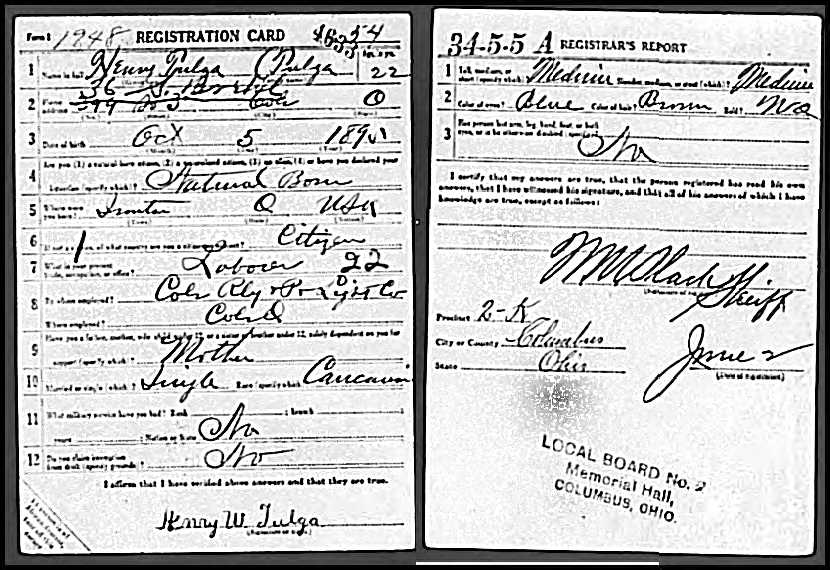 Form 1 1948 REGISTRATION CARD
1 Name in full Henry Tulga (Tulga) Age, in yrs. 22
2 Home address O
3 Date of birth Oct 5 189
(Month) (Day) (Year)
4 Are you (1) a natural born citizen, (2) a naturalized citizen, (3) an alien, (4) or have you declared your
intention (specify which)? Natural Born
5 Where were you born? Ironton O USA
(Town) (State) (Nation)
6 If not a citizen, of what country are you a citizen or subject? Citizen
7 What is your present trade, occupation, or office? Laborer 22
8 By whom employed? Cols Rly & Pr Light Co
Where employed? Cols O
9 Have you a father, mother, wife, child under 12, or a sister or brother under 12, solely dependent on you for
support (specify which)? Mother
10 Married or single (which)? Single Race (specify which)? Caucasian
11 What military service have you had? Rank ; branch ;
years ; Nation or State No
12 Do you claim exemption from draft (specify grounds)? No
I affirm that I have verified above answers and that they are true.
Henry W. Tulga
(Signature or mark)
34-5-5 A REGISTRAR'S REPORT
1 Tall, medium, or short (specify which)? Medium Slender, medium, or stout (which)? Medium
2 Color of eyes? Blue Color of hair? Brown Bald? No
3 Has person lost arm, leg, hand, foot, or both
eyes, or is he otherwise disabled (specify)?
No
I certify that my answers are true, that the person registered has read his own
answers, that I have witnessed his signature, and that all of his answers of which I have
knowledge are true, except as follows:
Sheriff
(Signature of registrar)
Precinct 2-K
City or County Columbus
State Ohio
June 2
(Date of registration)
LOCAL BOARD No. 2
Memorial Hall,
COLUMBUS, OHIO.